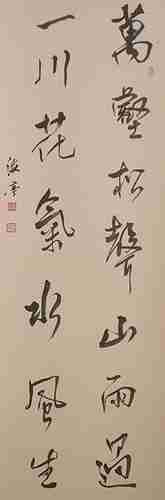 萬壑松聲山雨過
一川花氣水風生